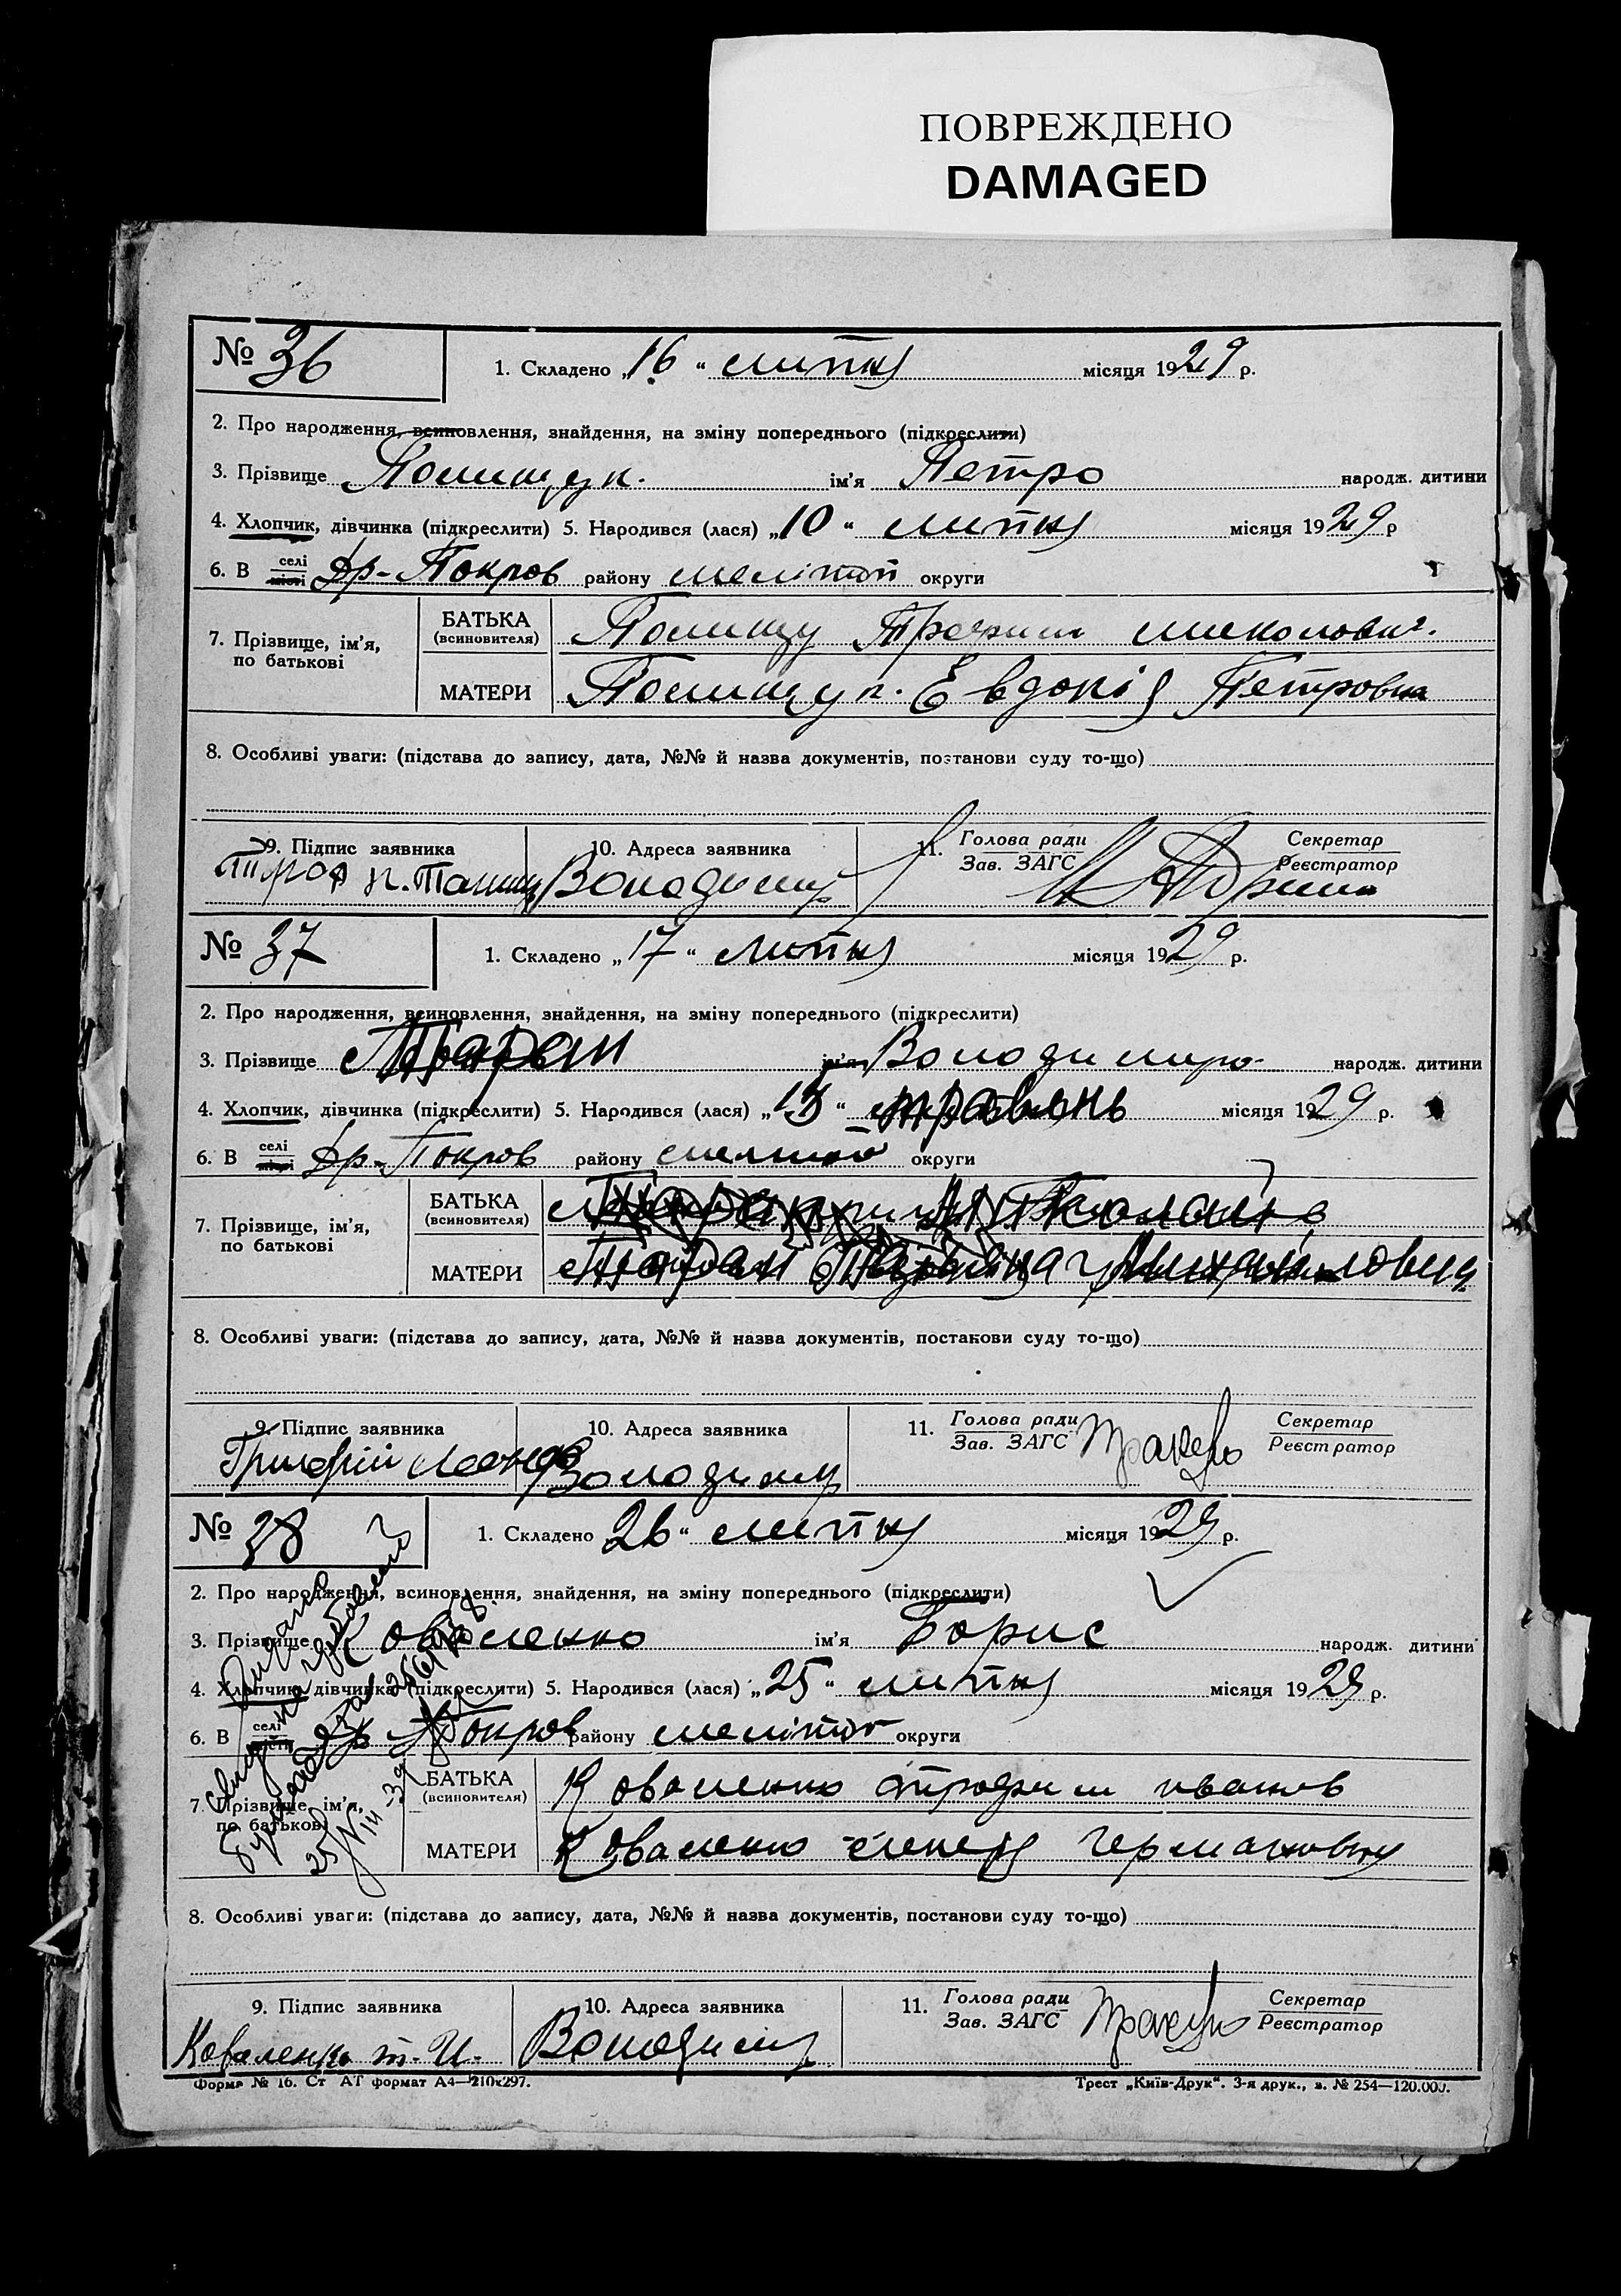 ПОВРЕЖДЕНО
DAMAGED
№ 36
1. Складено „16“ липня місяця 1929 р.
2. Про народження, всиновлення, знайдення, на зміну попереднього (підкреслити)
3. Прізвище Полищук. ім'я Петро народж. дитини
4. Хлопчик, дівчинка (підкреслити) 5. Народився (лася) „10“ липня місяця 1929 р
6. В селі місті Др-Покров району мелітоп округи
7. Прізвище, ім'я, по батькові
БАТЬКА (всиновителя) Полищу Трофим миколович.
МАТЕРИ Полищук. Евдокія Петровна
8. Особливі уваги: (підстава до запису, дата, №№ й назва документів, постанови суду то-що)
9. Підпис заявника 10. Адреса заявника 11. Голова ради Зав. ЗАГС Секретар Реєстратор
Володимир
№ 37
1. Складено „17“ липня місяця 1929 р.
2. Про народження, всиновлення, знайдення, на зміну попереднього (підкреслити)
3. Прізвище Таран ім'я Володимир народж. дитини
4. Хлопчик, дівчинка (підкреслити) 5. Народився (лася) „13“ травень місяця 1929 р.
6. В селі місті Др-Покров району округи
7. Прізвище, ім'я, по батькові
БАТЬКА (всиновителя)
МАТЕРИ Таран
8. Особливі уваги: (підстава до запису, дата, №№ й назва документів, постанови суду то-що)
9. Підпис заявника 10. Адреса заявника 11. Голова ради Зав. ЗАГС Секретар Реєстратор
Григорій Володимир
№ 38
1. Складено 26“ липня місяця 1929 р.
2. Про народження, всиновлення, знайдення, на зміну попереднього (підкреслити)
3. Прізвище Коваленко ім'я Борис народж. дитини
4. Хлопчик, дівчинка (підкреслити) 5. Народився (лася) „25“ липня місяця 1929 р.
6. В селі місті Др Покров району мелітоп округи
7. Прізвище, ім'я, по батькові
БАТЬКА (всиновителя) Коваленко трофим иванов
МАТЕРИ Коваленко елена германовна
8. Особливі уваги: (підстава до запису, дата, №№ й назва документів, постанови суду то-що)
9. Підпис заявника 10. Адреса заявника 11. Голова ради Зав. ЗАГС Секретар Реєстратор
Коваленко т. И. Володимир
Форма № 16. Ст АТ формат А4—210х297. Трест „Київ-Друк“. 3-я друк., з. № 254—120.000.